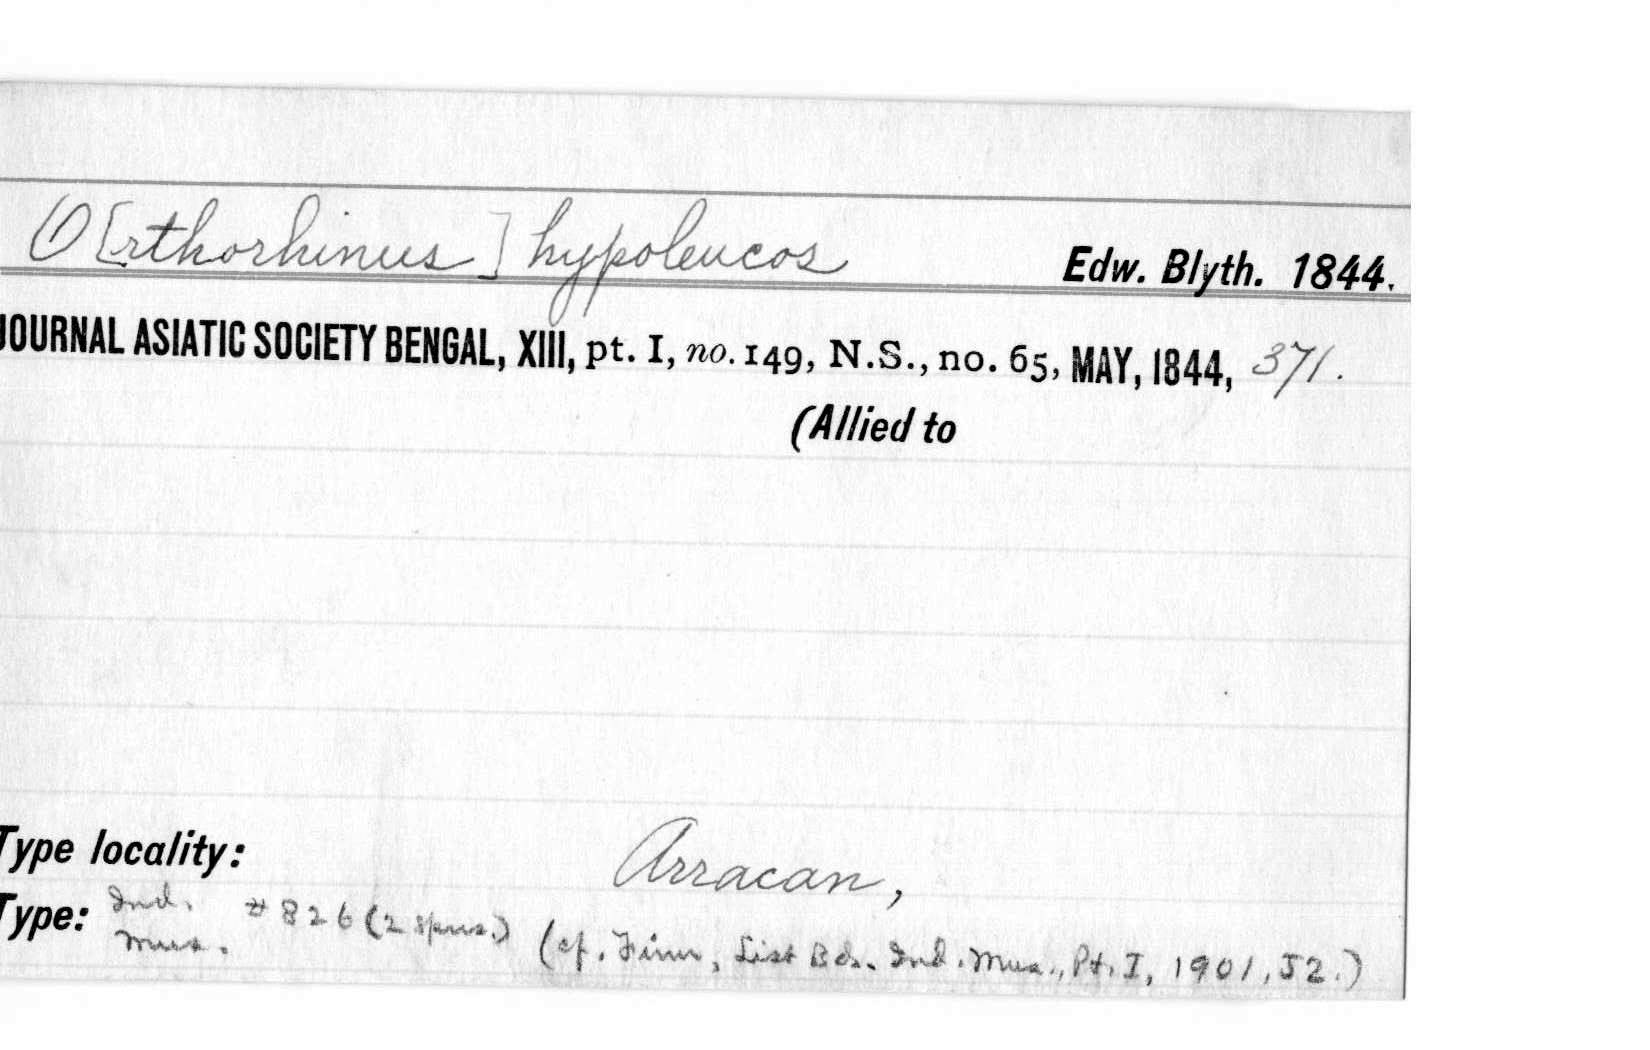 O[rthorhinus] hypoleucos
Edw. Blyth. 1844.
JOURNAL ASIATIC SOCIETY BENGAL, XIII, pt. I, no. 149, N.S., no. 65, MAY, 1844, 371.
(Allied to
Type locality: Arracan,
Type: Ind. Mus. #826 (2 spms.) (cf. Finn, List Bds. Ind. Mus., Pt. I, 1901, 52.)